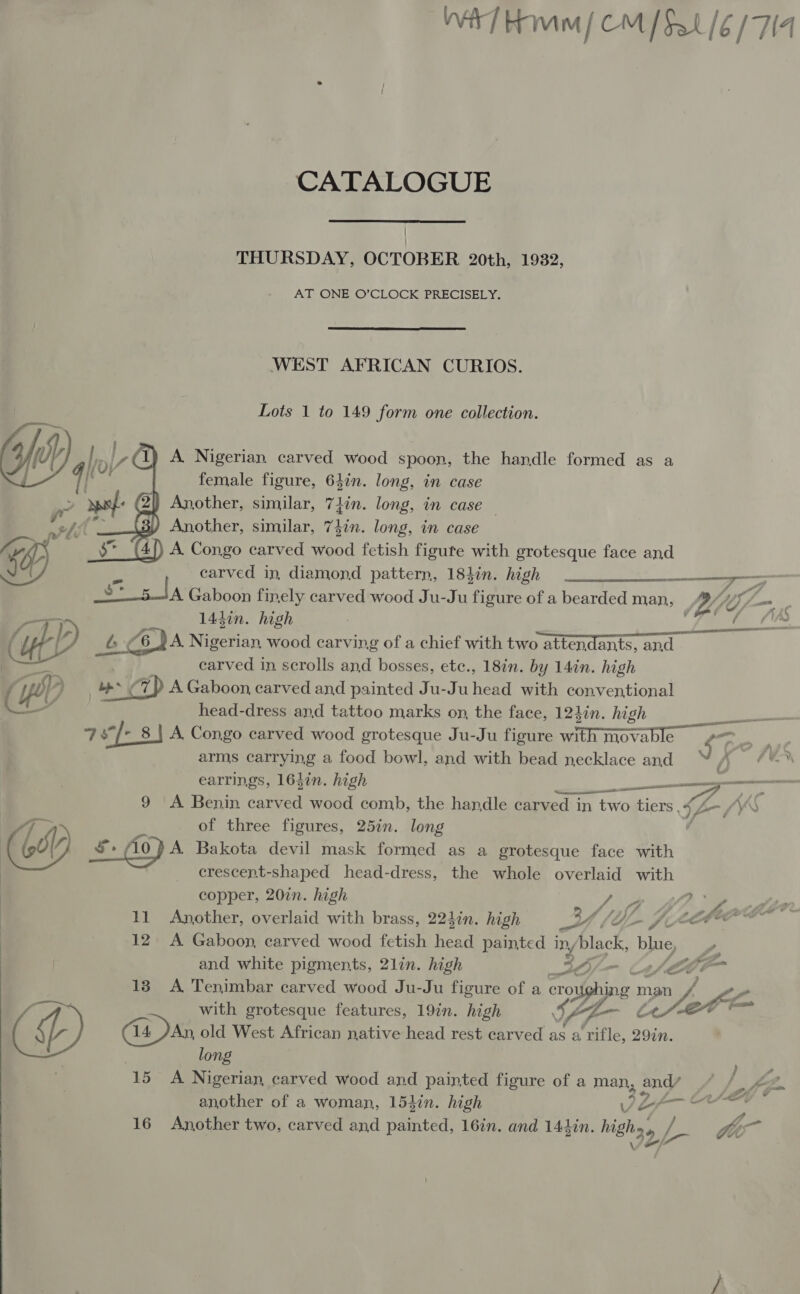 WA/HMM/CM/Sal/6/714
CATALOGUE
THURSDAY, OCTOBER 20th, 1932,
AT ONE O'CLOCK PRECISELY.
WEST AFRICAN CURIOS.
Lots 1 to 149 form one collection.
1 A Nigerian carved wood spoon, the handle formed as a
female figure, 6½in. long, in case
2 Another, similar, 7¼in. long, in case
3 Another, similar, 7½in. long, in case
4 A Congo carved wood fetish figure with grotesque face and
carved in diamond pattern, 18½in. high
5 A Gaboon finely carved wood Ju-Ju figure of a bearded man,
14½in. high
6 A Nigerian wood carving of a chief with two attendants, and
carved in scrolls and bosses, etc., 18in. by 14in. high
7 A Gaboon carved and painted Ju-Ju head with conventional
head-dress and tattoo marks on the face, 12½in. high
8 A Congo carved wood grotesque Ju-Ju figure with movable
arms carrying a food bowl, and with bead necklace and
earrings, 16½in. high
9 A Benin carved wood comb, the handle carved in two tiers
of three figures, 25in. long
10 A Bakota devil mask formed as a grotesque face with
crescent-shaped head-dress, the whole overlaid with
copper, 20in. high
11 Another, overlaid with brass, 22½in. high
12 A Gaboon carved wood fetish head painted in black, blue,
and white pigments, 21in. high
13 A Tenimbar carved wood Ju-Ju figure of a crouching man
with grotesque features, 19in. high
14 An old West African native head rest carved as a rifle, 29in.
long
15 A Nigerian carved wood and painted figure of a man, and
another of a woman, 15½in. high
16 Another two, carved and painted, 16in. and 14½in. high